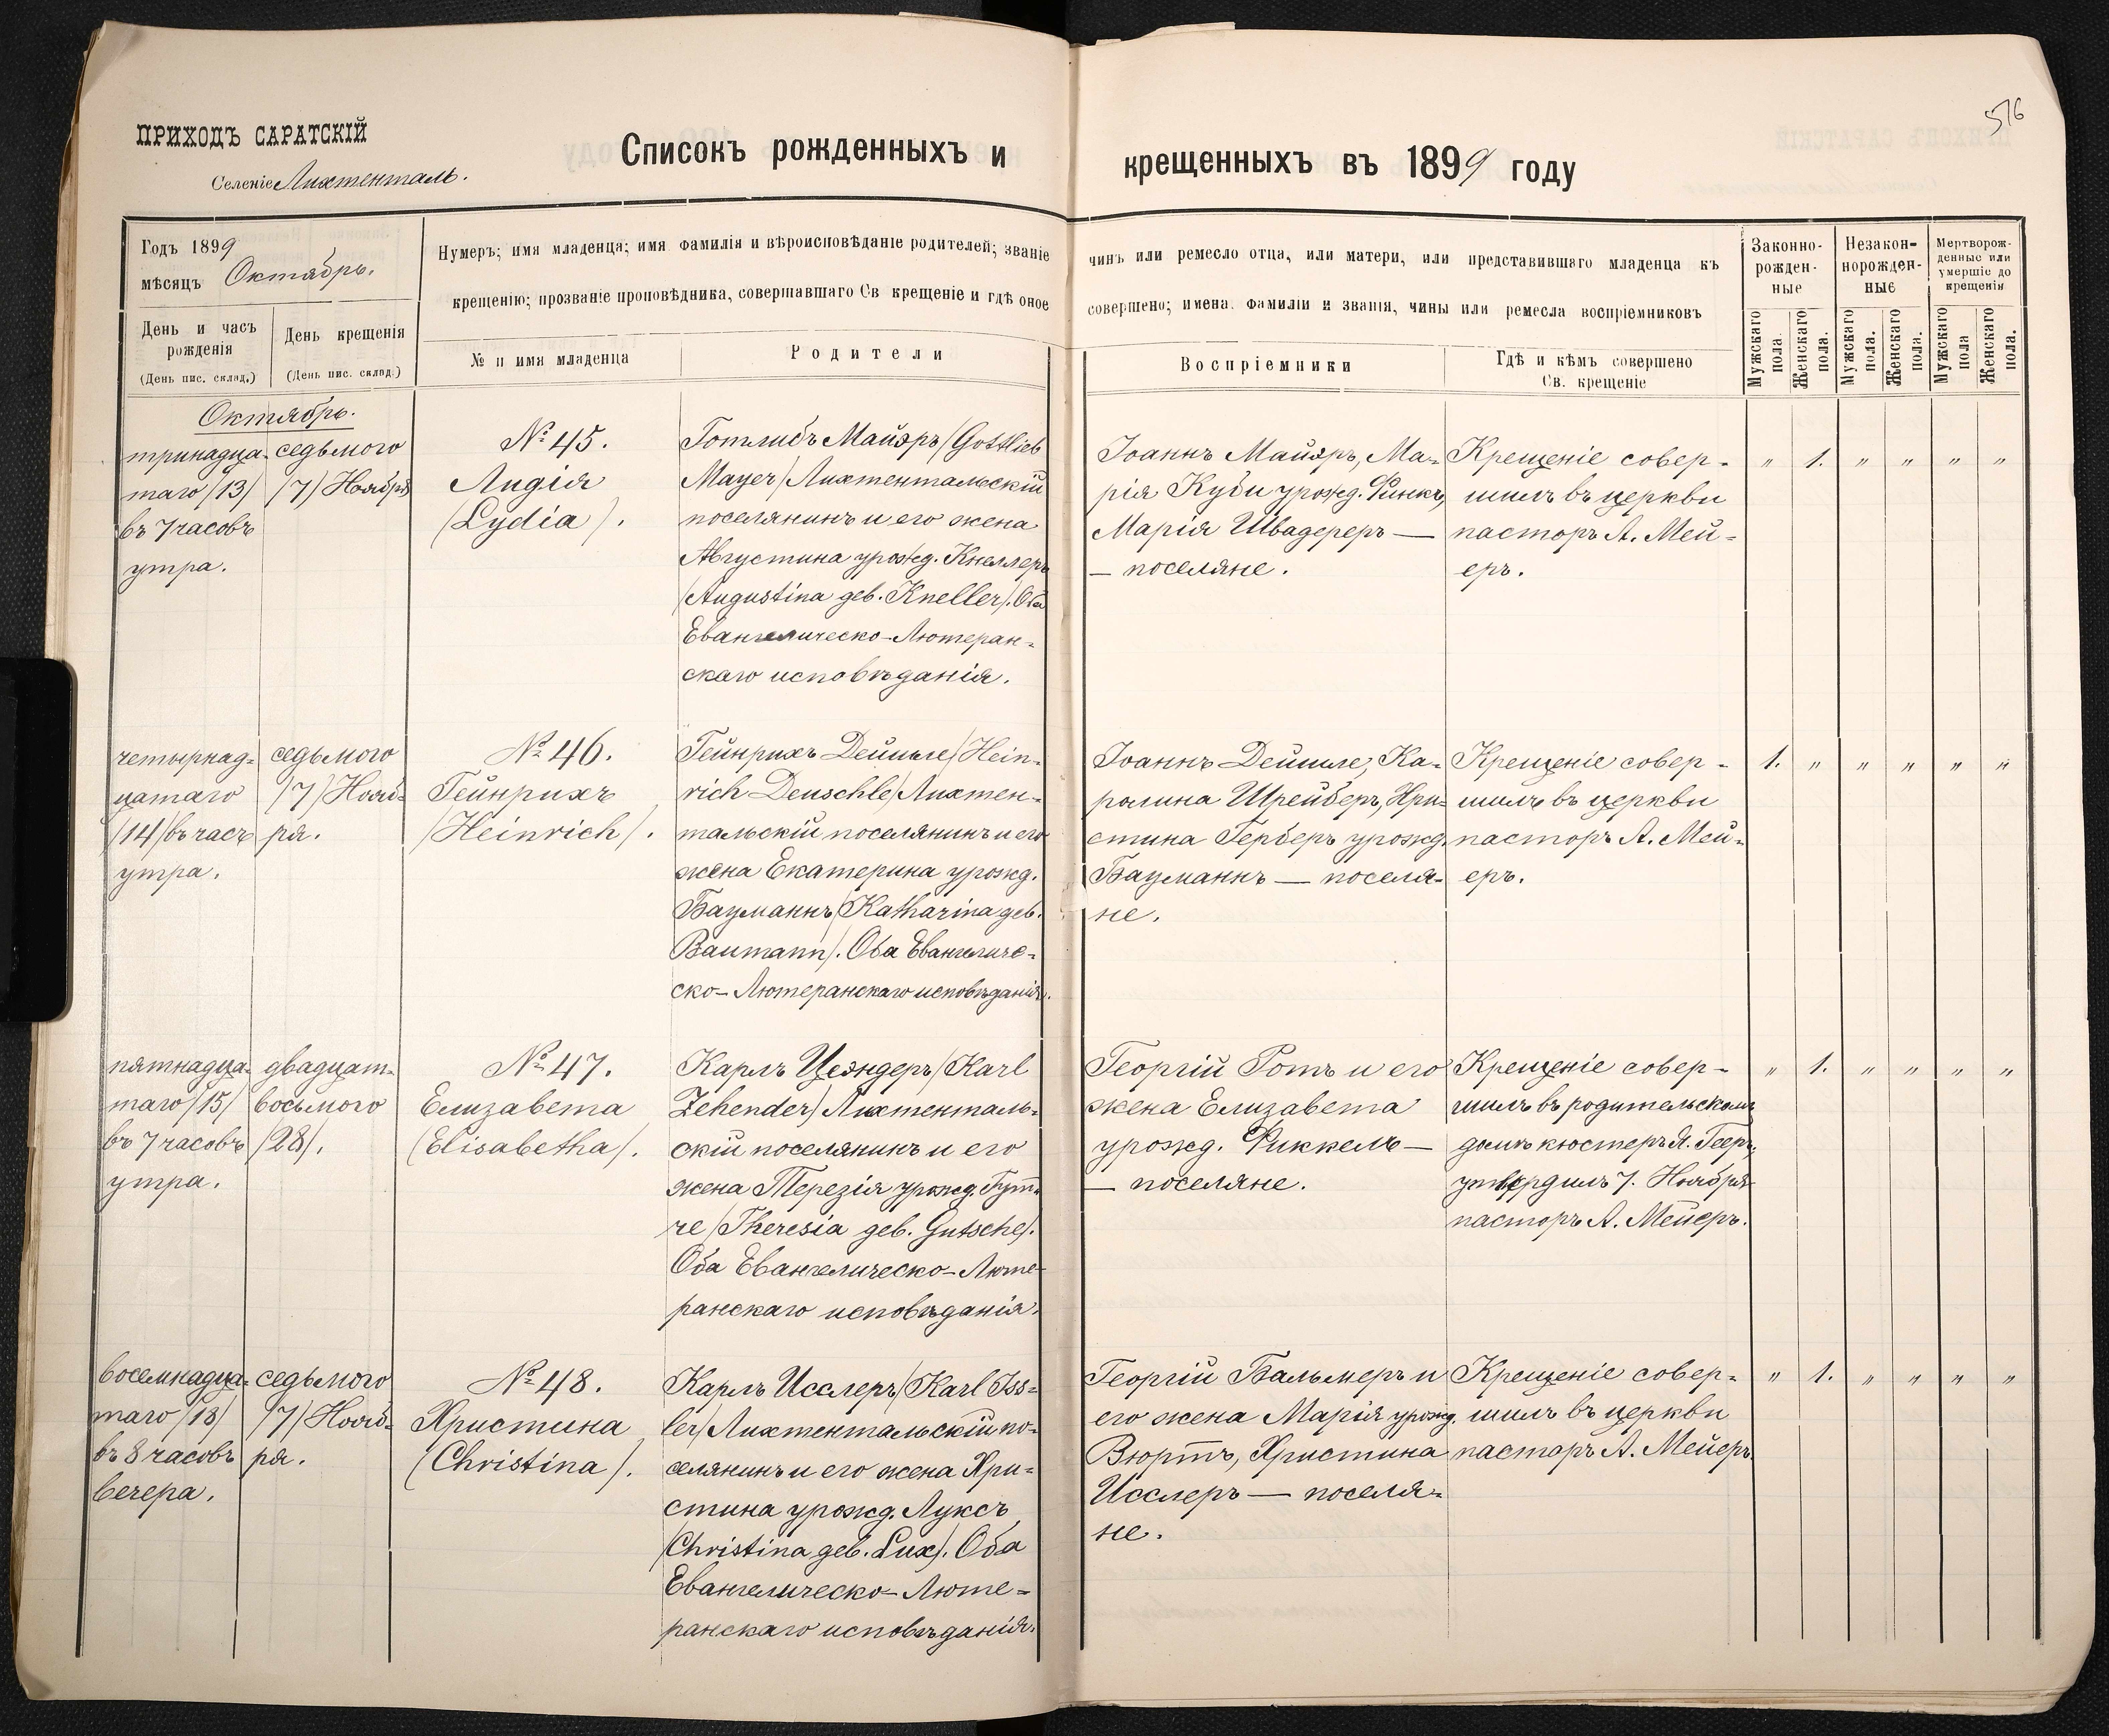 576
ПРИХОДЪ САРАТСКІЙ
Селеніе Лихтенталь.
Списокъ рожденныхъ и крещенныхъ въ 1899 году
Годъ 1899
мѣсяцъ Октябрь.
День и часъ
рожденія
(День пис. склад.)
День крещенія
(День пис. склад.)
Нумеръ; имя младенца; имя фамилія и вѣроисповѣданіе родителей; званіе
крещенію; прозваніе проповѣдника, совершавшаго Св крещеніе и гдѣ оное
№ и имя младенца
Родители
чинъ или ремесло отца, или матери, или представившаго младенца къ
совершено; имена. фамиліи и званія, чины или ремесла воспріемниковъ
Воспріемники
Гдѣ и кѣмъ совершено
Св. крещеніе
Законно-
рожден-
ные
Незакон-
норожден-
ные
Мертворож-
денные или
умершіе до
крещенія
Мужскаго
пола.
Женскаго
пола.
Мужскаго
пола.
Женскаго
пола.
Мужскаго
пола
Женскаго
пола.
Октябрь.
тринадца-
таго /13/
въ 7 часовъ
утра.
седьмого
/7/ Ноября
№ 45.
Лидія
(Lydia).
Готлибъ Майэръ /Gottlieb
Mayer/ Лихтентальскій
поселянинъ и его жена
Августина урожд. Кнеллеръ
/Augustina geb. Kneller/. Оба
Евангелическо-Лютеран-
скаго исповѣданія.
Іоаннъ Майэръ, Ма-
рія Куби урожд. Финкъ,
Марія Швадереръ —
— поселяне.
Крещеніе совер-
шилъ въ церкви
пасторъ А. Мей-
еръ.
" 1. " " " "
четырнад-
цатаго
/14/ въ часъ
утра.
седьмого
/7/ Нояб-
ря.
№ 46.
Гейнрихъ
/Heinrich/.
Гейнрихъ Дейшле /Hein-
rich Deuschle/ Лихтен-
тальскій поселянинъ и его
жена Екатерина урожд.
Бауманнъ /Katharina geb.
Baumann/. Оба Евангеличе-
ско-Лютеранскаго исповѣданія.
Іоаннъ Дейшле, Ка-
ролина Шрейберъ, Хри-
стина Герберъ урожд.
Бауманнъ — поселя-
не.
Крещеніе совер-
шилъ въ церкви
пасторъ А. Мей-
еръ.
1. " " " " "
пятнадца-
таго /15/
въ 7 часовъ
утра.
двадцат-
восьмого
/28/.
№ 47.
Елизабета
(Elisabetha).
Карлъ Цеэндеръ /Karl
Zehender/ Лихтенталь-
скій поселянинъ и его
жена Терезія урожд. Гут-
че /Theresia geb. Gutsche/.
Оба Евангелическо-Люте-
ранскаго исповѣданія.
Георгій Ротъ и его
жена Елизабета
урожд. Фиккель —
— поселяне.
Крещеніе совер-
шилъ въ родительскомъ
домѣ кюстеръ Я. Гееръ,
утвердилъ 7. Ноября
пасторъ А. Мейеръ.
" 1. " " " "
восемнадца-
таго /18/
въ 8 часовъ
вечера.
седьмого
/7/ Нояб-
ря.
№ 48.
Христина
(Christina).
Карлъ Исслеръ /Karl Iss-
ler/ Лихтентальскій по-
селянинъ и его жена Хри-
стина урожд. Луксъ
/Christina geb. Lux/. Оба
Евангелическо-Люте-
ранскаго исповѣданія.
Георгій Бальмеръ и
его жена Марія урожд.
Вюртъ, Христина
Исслеръ — поселя-
не.
Крещеніе совер-
шилъ въ церкви
пасторъ А. Мейеръ.
" 1. " " " "